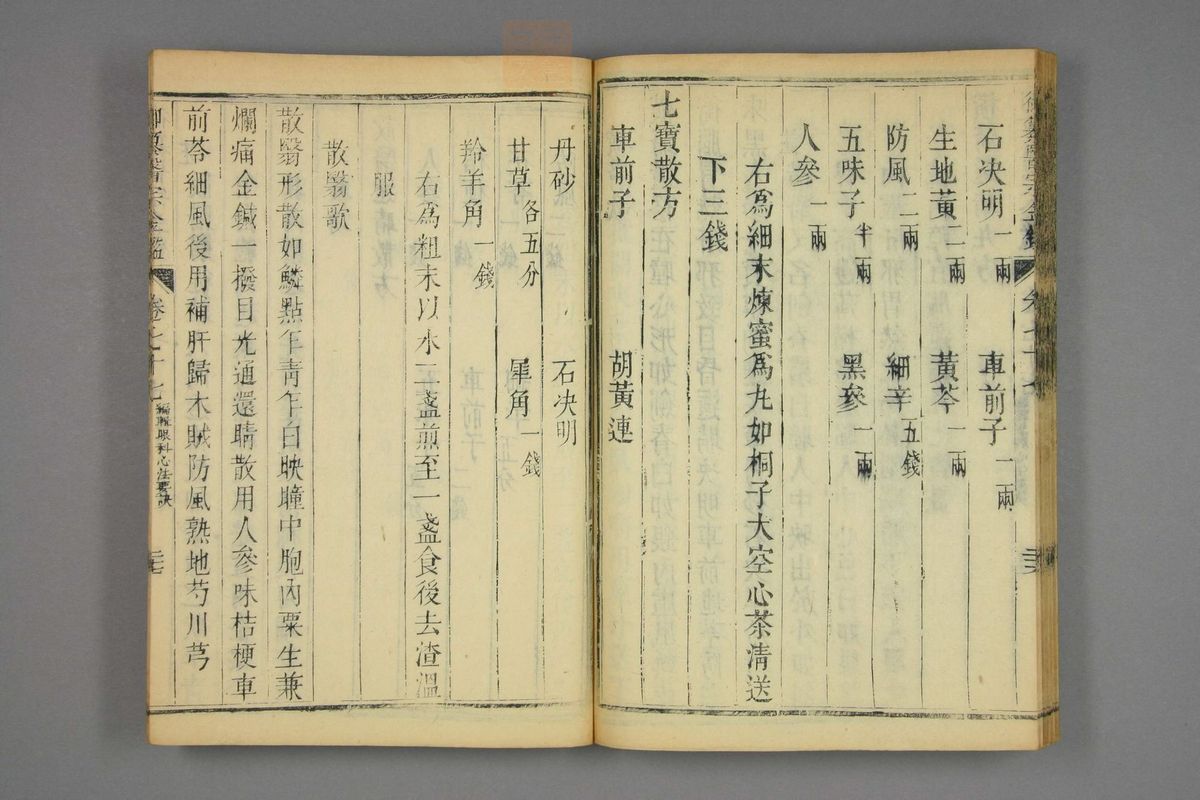 石決明一兩　車前子一兩
生地黃二兩　黃芩一兩
防風二兩　細辛五錢
五味子半兩　黑參一兩
人參一兩
右爲細末煉蜜爲丸如桐子大空心茶清送
下三錢
七寶散方
車前子　胡黃連
丹砂　石決明
甘草各五分　犀角一錢
羚羊角一錢
右爲粗末以水二盞煎至一盞食後去渣溫
服
散翳歌
散翳形散如鱗點乍靑乍白映瞳中胞內粟生兼
爛痛金鍼一撥目光通還睛散用人參味桔梗車
前苓細風後用補肝歸木賊防風熟地芍川芎
御纂醫宗金鑑　卷七十七　編輯眼科心法要訣